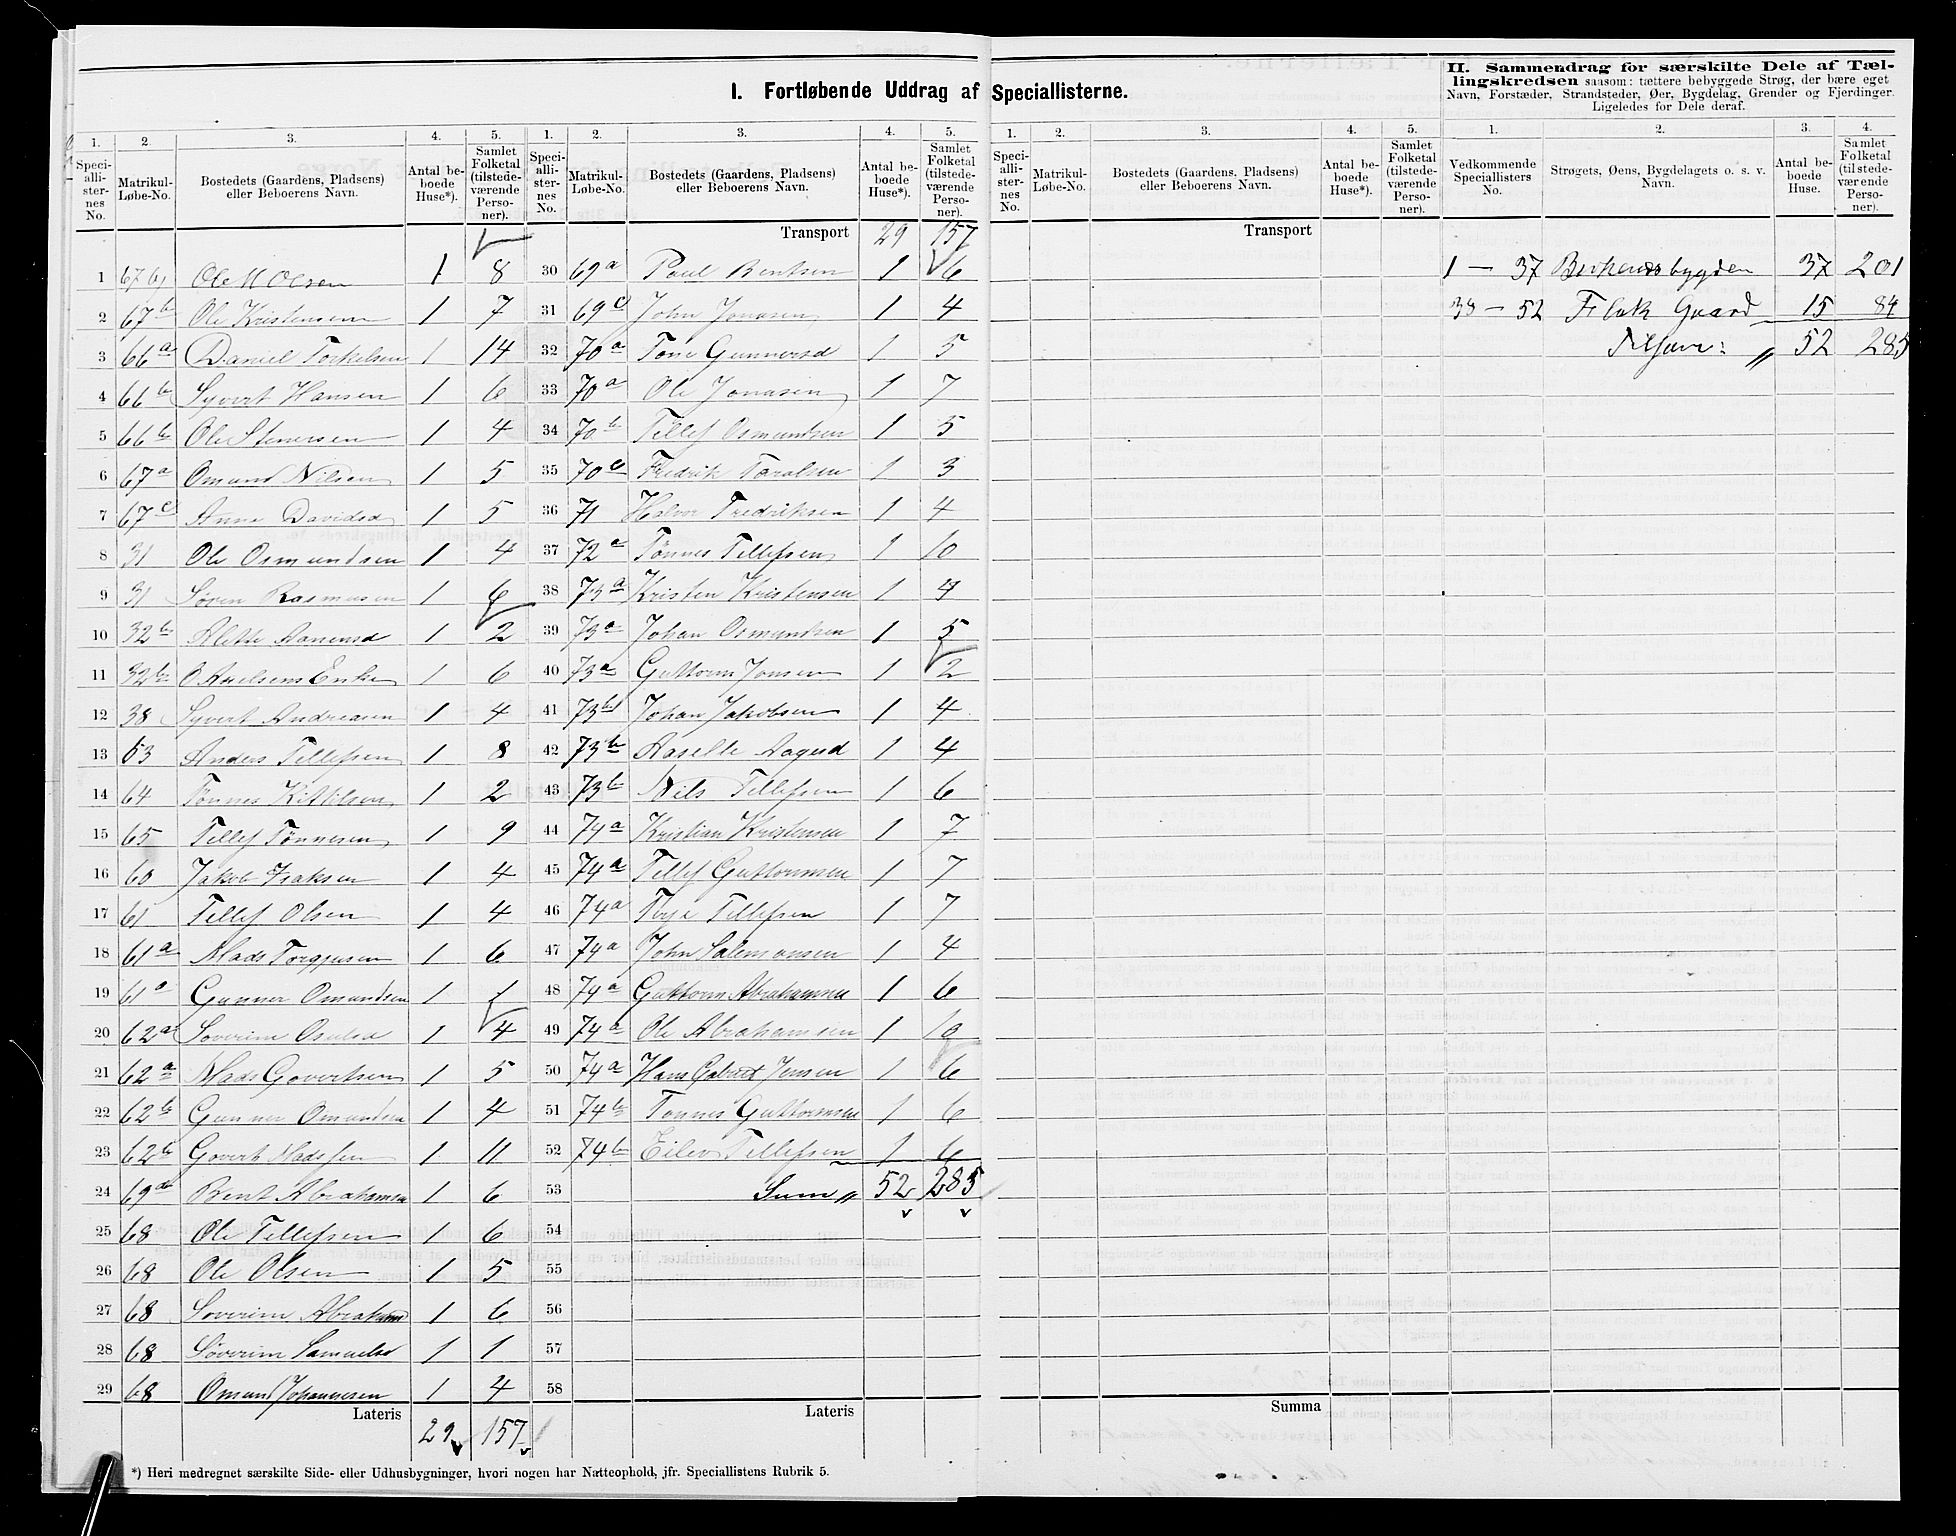 I. Fortløbende Uddrag af Speciallisterne.
II. Sammendrag for særskilte Dele af Tællingskredsen saasom: tættere bebyggede Strøg, der bære eget Navn, Forstæder, Strandsteder, Øer, Bygdelag, Grender og Fjerdinger. Ligeledes for Dele deraf.
1. 2. 3. 4. 5. 1. 2. 3. 4. 5. 1. 2. 3. 4. 5. 1. 2. 3. 4.
Speciallisternes No. Matrikul-Løbe-No. Bostedets (Gaardens, Pladsens) eller Beboerens Navn. Antal beboede Huse*). Samlet Folketal (tilstedeværende Personer).
Speciallisternes No. Matrikul-Løbe-No. Bostedets (Gaardens, Pladsens) eller Beboerens Navn. Antal beboede Huse*). Samlet Folketal (tilstedeværende Personer).
Speciallisternes No. Matrikul-Løbe-No. Bostedets (Gaardens, Pladsens) eller Beboerens Navn. Antal beboede Huse*). Samlet Folketal (tilstedeværende Personer).
Vedkommende Speciallisters No. Strøgets, Øens, Bygdelagets o. s. v. Navn. Antal beboede Huse. Samlet Folketal (tilstedeværende Personer).
1 Ole M Olsen 1 8
2 67b Ole Kristensen 1 7
3 66a Daniel Torkelsen 1 14
4 66b Syvert Hansen 1 6
5 66b Ole Stenersen 1 4
6 67a Omund Nilsen 1 5
7 67c Anne Davidsd 1 5
8 31 Ole Osmundsen 1 4
9 31 Søren Rasmusen 1 6
10 32b Alette Aanensd 1 2
11 32b Enke 1 6
12 38 Syvert Andreasen 1 4
13 63 Anders Tellefsen 1 8
14 64 Tønnes Kittilsen 1 2
15 65 Tellef Tønnesen 1 9
16 60 Jakob Isaksen 1 4
17 61 Tellef Olsen 1 4
18 61a Mads Torgjusen 1 6
19 61a Gunner Omundsen 1 1
20 62a Soverine 1 4
21 62a Mads Govertsen 1 5
22 62b Gunner Omundsen 1 4
23 62b Govert Madssen 1 11
24 69 Bent Abrahamsen 1 6
25 68 Ole Tellefsen 1 6
26 68 Ole Olsen 1 5
27 68 Soverine 1 6
28 68 Søverine Samuelsd 1 1
29 68 Omund Johannesen 1 4
Lateris 29 157
Transport 29 157
30 69a Poul Bentsen 1 6
31 69c John Jonasen 1 4
32 70a Tone Gunnersd 1 5
33 70a Ole Jonasen 1 7
34 70b Tellef Osmundsen 1 5
35 70c Fredrik Taralsen 1 3
36 71 Halvor Fredriksen 1 4
37 72a Tønnes Tellefsen 1 10
38 73a Kristen Kristensen 1 4
39 73a Johan Osmundsen 1 5
40 73a Guttorm Jonsen 1 2
41 73b Johan Jakobsen 1 4
42 73b Aaselle Aagesd 1 4
43 73b Nils Tellefsen 1 6
44 74a Kristian Kristensen 1 7
45 74a Tellef Guttormsen 1 7
46 74a Terje Tellefsen 1 7
47 74a John Salemonsen 1 4
48 74a Guttorm Abrahamsen 1 6
49 74a Ole Abrahamsen 1 10
50 74a Hans Gabriel Jensen 1 6
51 74b Tønnes Guttormsen 1 6
52 74b Eilev Tellefsen 1 6
53 Sum „ 52 285
54
55
56
57
58
Lateris
Transport
Summa
1 — 37 Birkenesbygden 37 201
38 — 52 Flak Gaard 15 84
Tilsam: „ 52 285
*) Heri medregnet særskilte Side- eller Udhusbygninger, hvori nogen har Natteophold, jfr. Speciallistens Rubrik 5.